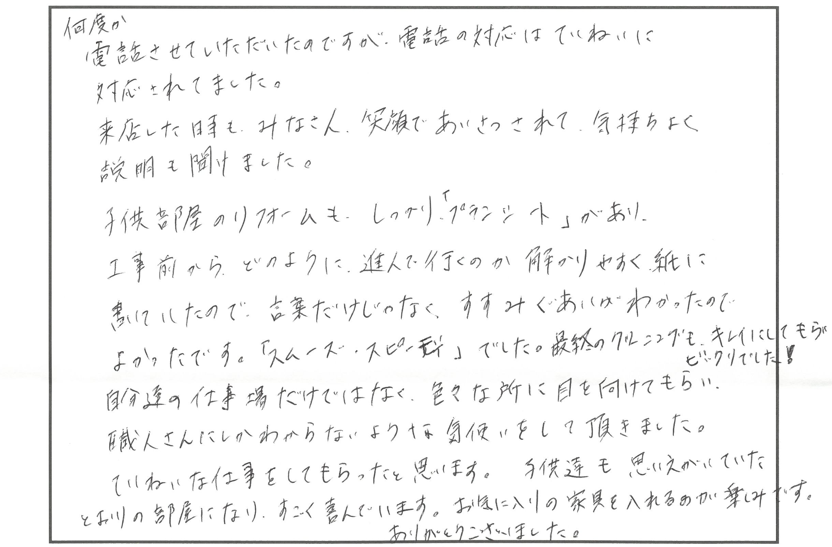 何度か
電話させていただいたのですが、電話の対応はていねいに
対応されてました。
来店した時も、みなさん、笑顔であいさつされて、気持ちよく
説明も聞けました。
子供部屋のリフォームも、しっかり、「プランシート」があり、
工事前から、どのように、進んで行くのか解かりやすく紙に
書いていたので、言葉だけじゃなく、すすみぐあいがわかったので
よかったです。「スムーズ・スピーディ」でした。最終のクリーニングも、キレイにしてもらい
ビックリでした!
自分達の仕事場だけではなく、色々な所に目を向けてもらい、
職人さんにしかわからないような気使いをして頂きました。
ていねいな仕事をしてもらったと思います。子供達も思いえがいていた
とおりの部屋になり、すごく喜んでいます。お気に入りの家具を入れるのが楽しみです。
ありがとうございました。